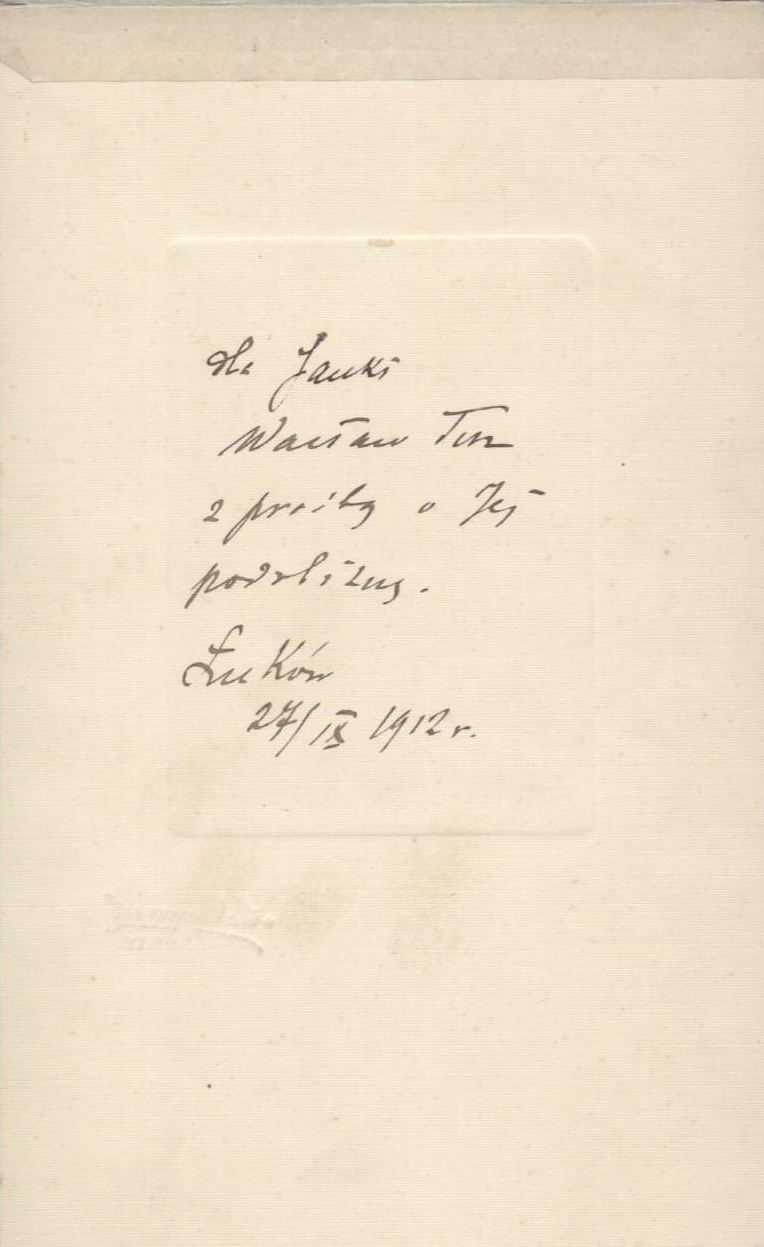 dla Janki
Wacław
z prośbą o Jej
podobiznę.
Łuków
27/IX 1912 r.